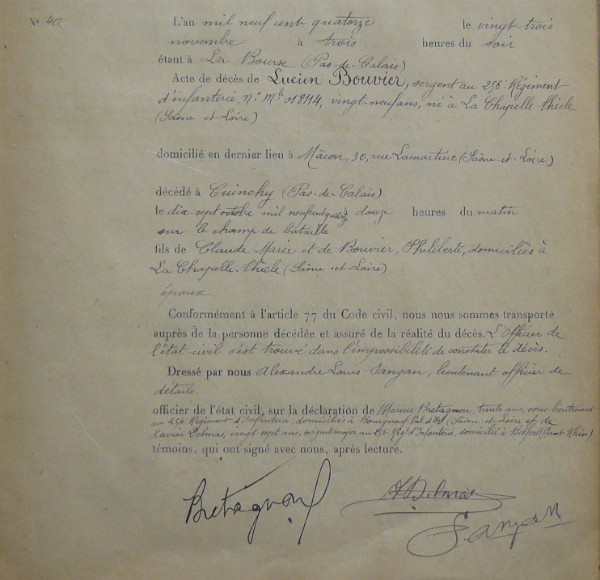 N° 40
L'an mil neuf cent quatorze le vingt-trois
novembre à trois heures du soir
étant à La Bourse (Pas-de-Calais)
Acte de décès de Lucien Bouvier, sergent au 256e Régiment
d'infanterie, N° Mle 018114, vingt-neuf ans, né à La Chapelle-Thècle
(Saône et-Loire)
domicilié en dernier lieu à Mâcon, 30, rue Lamartine (Saône-et-Loire)
décédé à Cuinchy (Pas-de-Calais)
le dix-sept octobre mil neuf cent quatorze à douze heures du matin
sur le champ de bataille
fils de Claude Marie et de Bouvier, Philiberte, domiciliés à
La Chapelle-Thècle (Saône-et-Loire)
époux
Conformément à l'article 77 du Code civil, nous nous sommes transporté
auprès de la personne décédée et assuré de la réalité du décès. L'Officier de
l'état civil s'est trouvé dans l'impossibilité de constater le décès.
Dressé par nous Alexandre Louis Sangan, lieutenant officier de
détails
officier de l'état civil, sur la déclaration de Marius Bretagnon, trente ans, sous lieutenant
au 256e Régiment d'Infanterie, domicilié à (Saône et Loire) et de
Xavier Delmas, vingt sept ans, sergent major au 256e Régt d'Infanterie, domicilié à Belfort (Haut-Rhin)
témoins, qui ont signé avec nous, après lecture.
Bretagnon
Delmas
Sangan